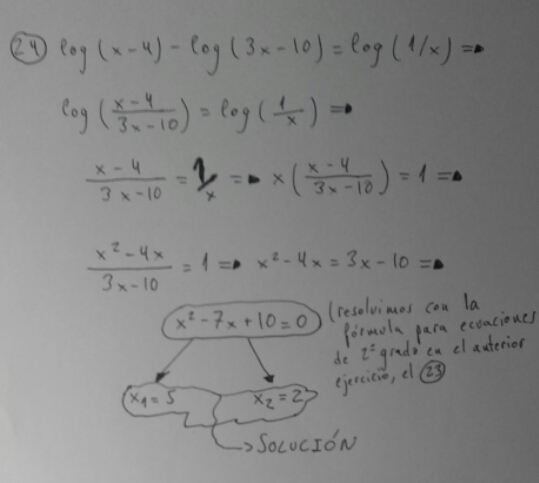 24 log (x-4) - log (3x-10) = log (1/x) =>
log ( (x-4)/(3x-10) ) = log ( 1/x ) =>
(x-4)/(3x-10) = 1/x => x ( (x-4)/(3x-10) ) = 1 =>
(x²-4x)/(3x-10) = 1 => x²-4x = 3x-10 =>
x²-7x+10=0
(resolvimos con la
fórmula para ecuaciones
de 2º grado en el anterior
ejercicio, el 23
x₁=5 x₂=2
→ SOLUCIÓN